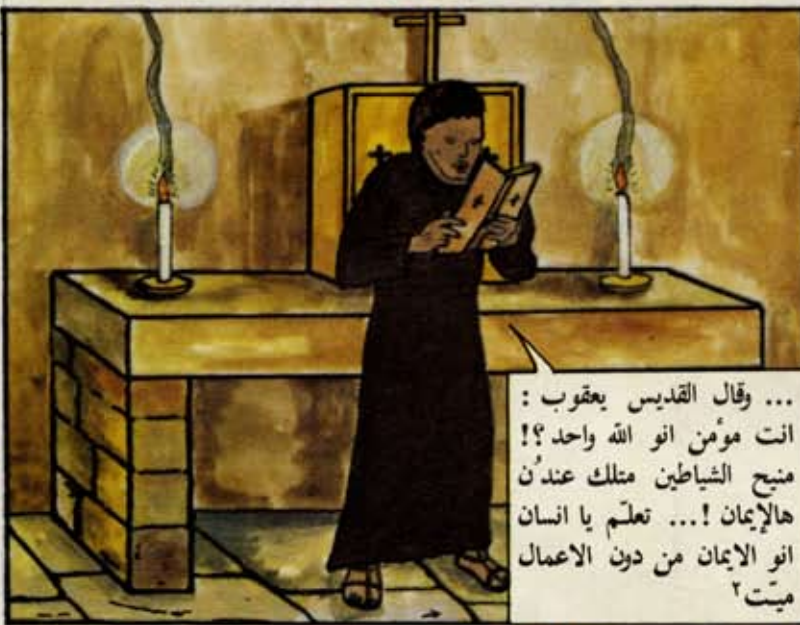 ... وقال القديس يعقوب :
انت موٴمن انو الله واحد ؟!
منيح الشياطين متلك عندُن
هالإيمان !... تعلّم يا انسان
انو الايمان من دون الاعمال
ميّت٢